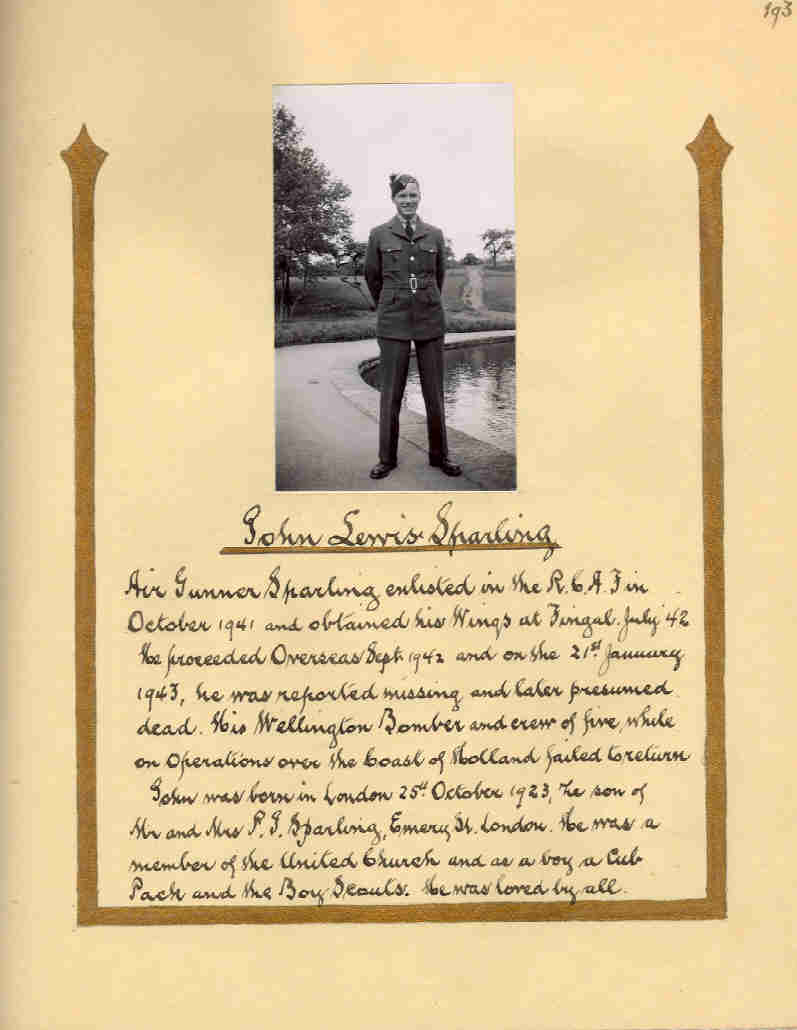 193
John Lewis Sparling
Air Gunner Sparling enlisted in the R.C.A.F in
October 1941 and obtained his Wings at Fingal. July 42
He proceeded Overseas Sept. 1942 and on the 21st January
1943, he was reported missing and later presumed
dead. His Wellington Bomber and crew of five, while
on Operations over the Coast of Holland failed to return
John was born in London 25th October 1923, the son of
Mr and Mrs P. J. Sparling, Emery St. London. He was a
member of the United Church and as a boy a Cub
Pack and the Boy Scouts. He was loved by all.